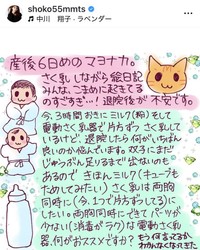 shoko55mmts
中川 翔子・ラベンダー
産後6日めのマヨナカ。
さく乳しながら絵日記
みんな、こまめに起きてる
のすごすぎ…!退院後が不安です。
今、3時間おきにミルク(粉)そして
電動さく乳器で片方ずつさく乳して
いるけど、退院したら何がいちばん
良いのか悩んでます。双子にまだ
じゅうぶん足りるまで出ないのも
あるので きほんミルク(キューブも
ためしてみたい)さく乳は両胸
同時に(今、1つで片方ずつしてる)に
したい。両胸同時にできてパーツが
少ない(消毒がラク)な電動さく乳
器、何がおススメですか?